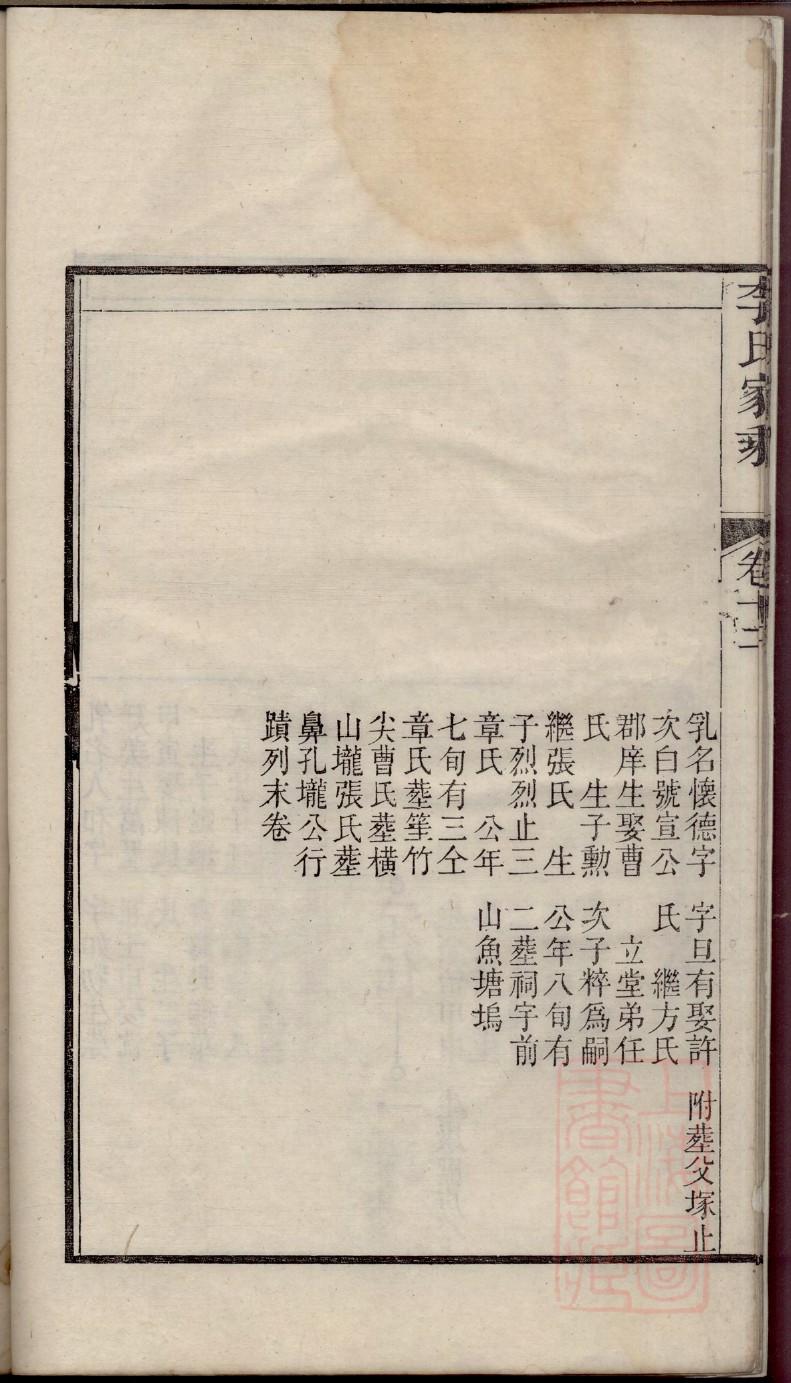 李氏家乘
卷十二
乳名懷德字
次白號宣公
郡庠生娶曹
氏　生子勲
繼張氏　生
子烈烈止三
章氏　公年
七旬有三仝
章氏塟筆竹
尖曹氏塟橫
山壠張氏塟
鼻孔壠公行
蹟列末卷
字旦有娶許
氏　繼方氏
立堂弟任
次子粹爲嗣
公年八旬有
二塟祠宇前
山魚塘塢
附塟父塚止
上海圖
書館藏